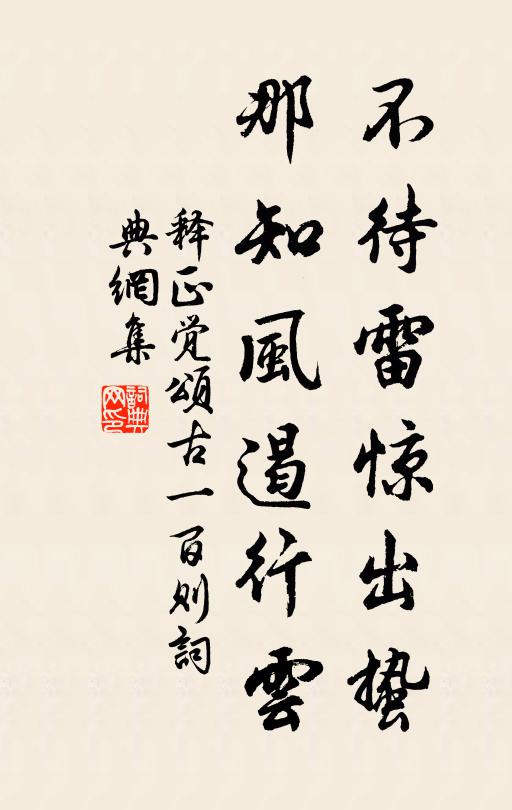 不待雷惊出蛰
那知風遏行雲
释正觉頌古一百则詞
典網集
詞典
网印